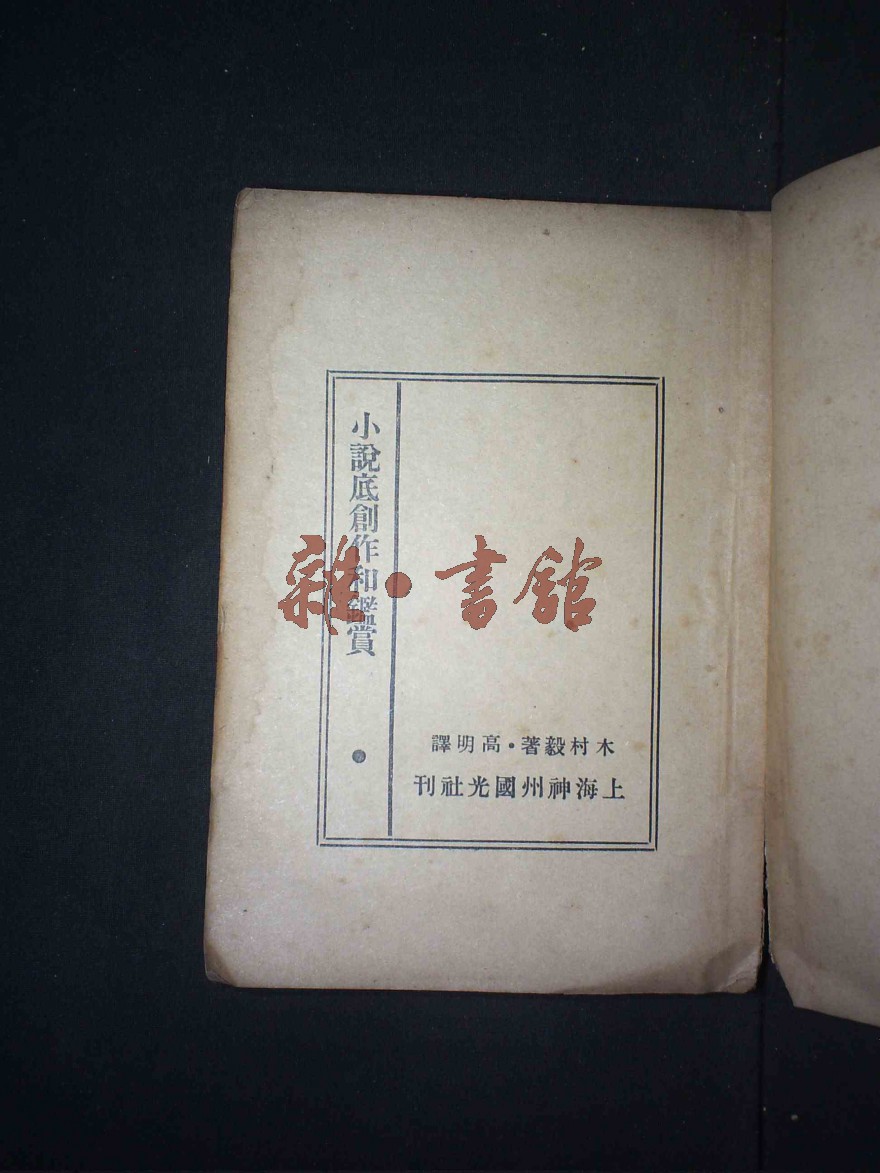 小說底創作和鑑賞
木村毅著·高明譯
上海神州國光社刊
雜·書館